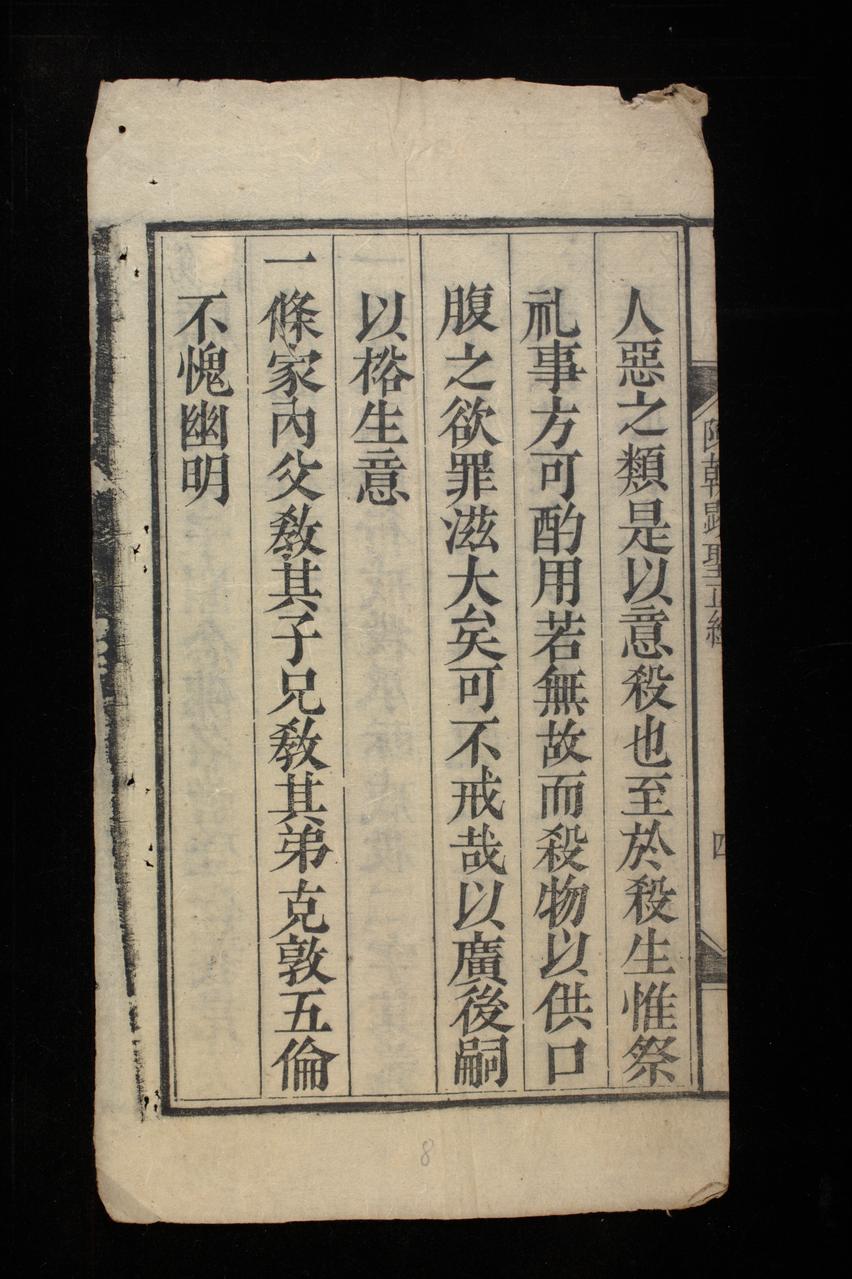 陳朝歷聖正經
四
人惡之類是以意殺也至於殺生惟祭
礼事方可酌用若無故而殺物以供口
腹之欲罪滋大矣可不戒哉以廣後嗣
以裕生意
一條家內父敎其子兄敎其弟克敦五倫
不愧幽明
8